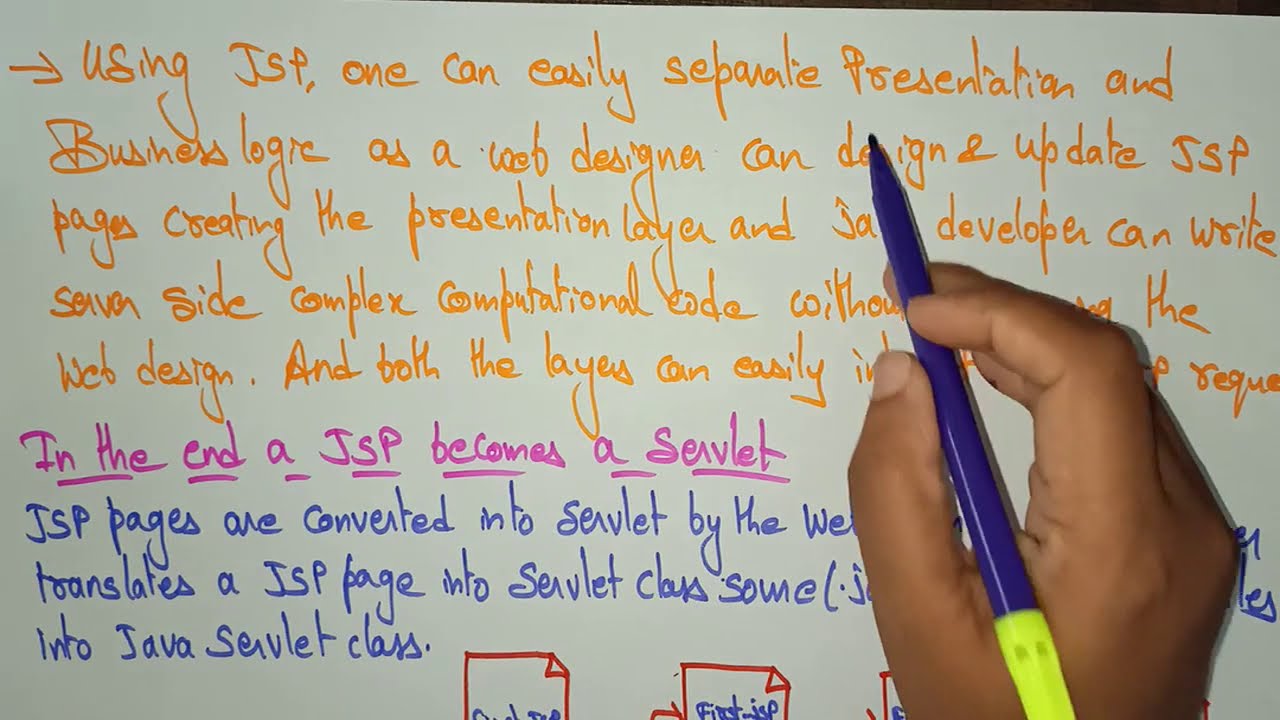 → Using JSP, one can easily separate Presentation and
Business logic as a web designer can design & update JSP
pages creating the presentation layer and developer can write
server side complex computational code the
Web design. And both the layers can easily
In the end a JSP becomes a Servlet
JSP pages are converted into Servlet by the
translates a JSP page into Servlet class
into Java Servlet class.
First-jsp